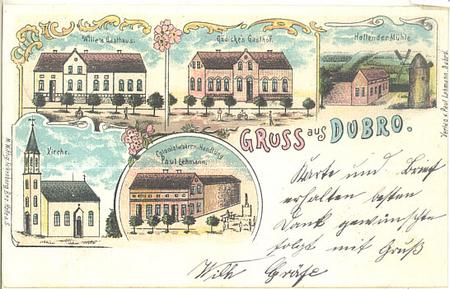 Wille's Gasthaus.
Gäbicke's Gasthof.
Holländer Mühle
Verlag v. Paul Lehmann, Dubro.
Kirche.
Colonialwaren-Handlung
Paul Lehmann.
GRUSS aus DUBRO.
Karte und Brief
erhalten besten
Dank gewünschte
folgt mit Gruß
Wilh Gräfe